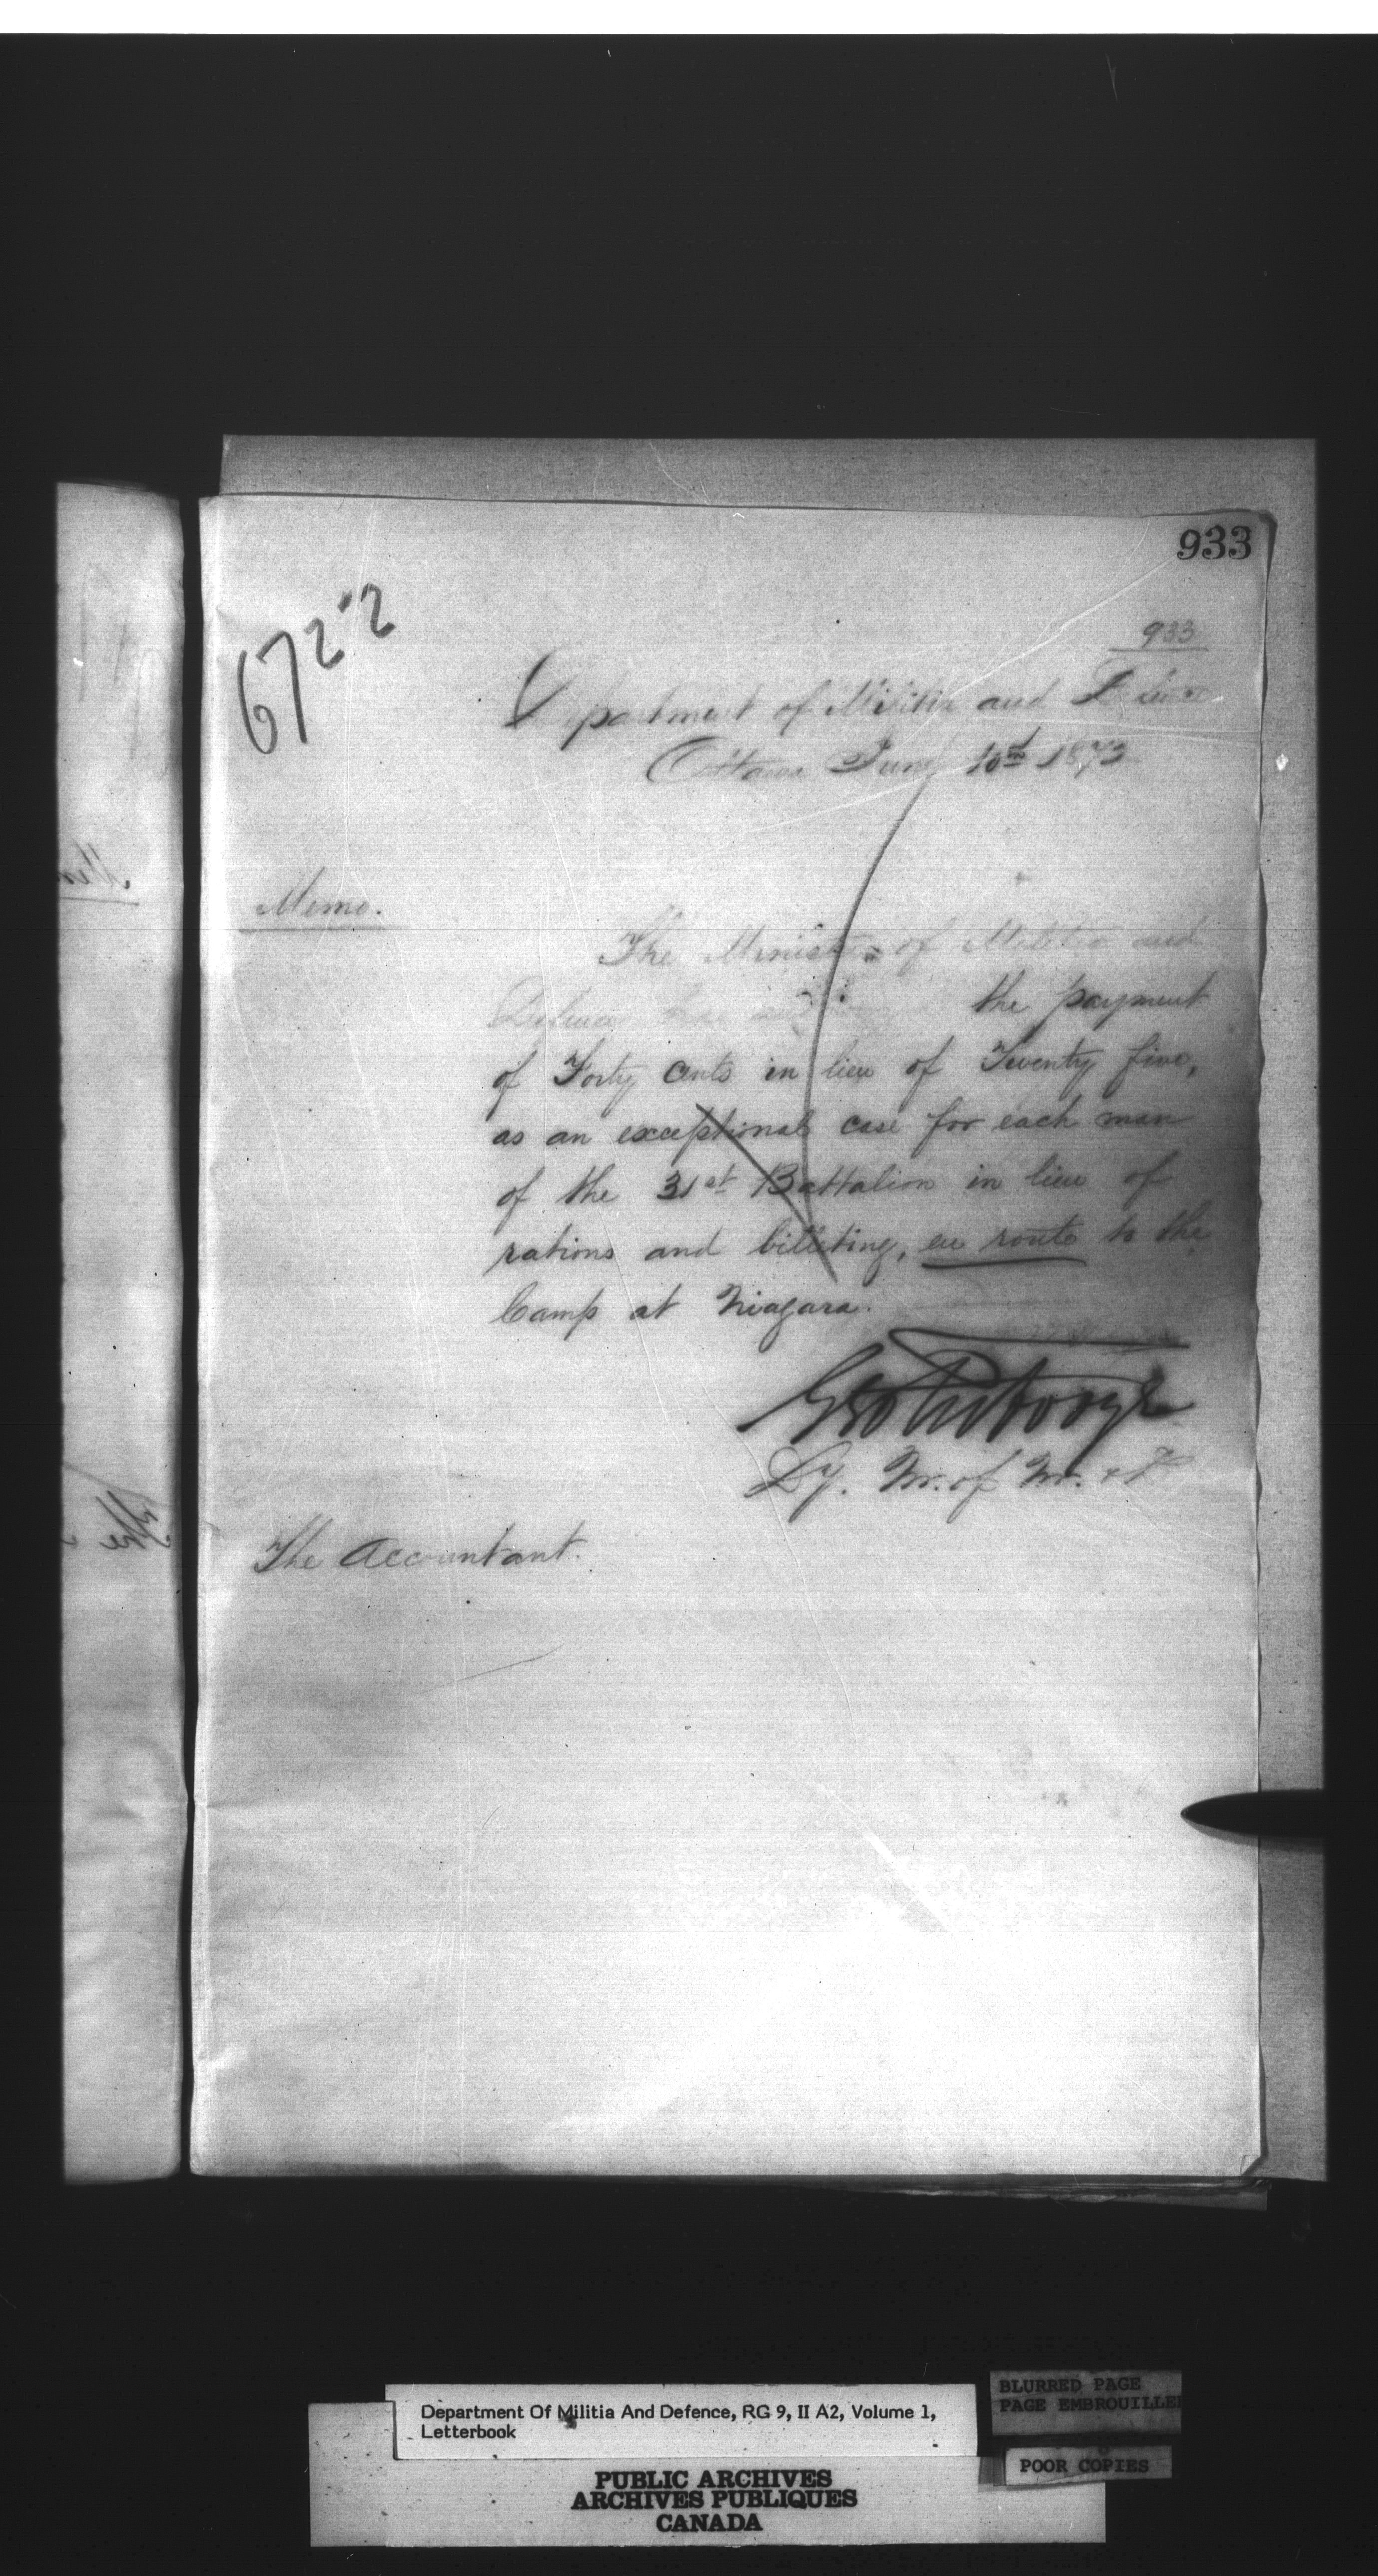 933
933
6722
Department of Militia and Defence
Ottawa June 1873
Memo.
The Minister of Militia and
Defence has the payment
of Forty cents in lieu of Twenty five,
as an exceptional case for each man
of the 31st Battalion in lieu of
rations and billeting, en route to the
Camp at Niagara.
Dy. M. of M. & D
The Accountant.
Department Of Militia And Defence, RG 9, II A2, Volume 1,
Letterbook
BLURRED PAGE
PAGE EMBROUILLEE
POOR COPIES
PUBLIC ARCHIVES
ARCHIVES PUBLIQUES
CANADA